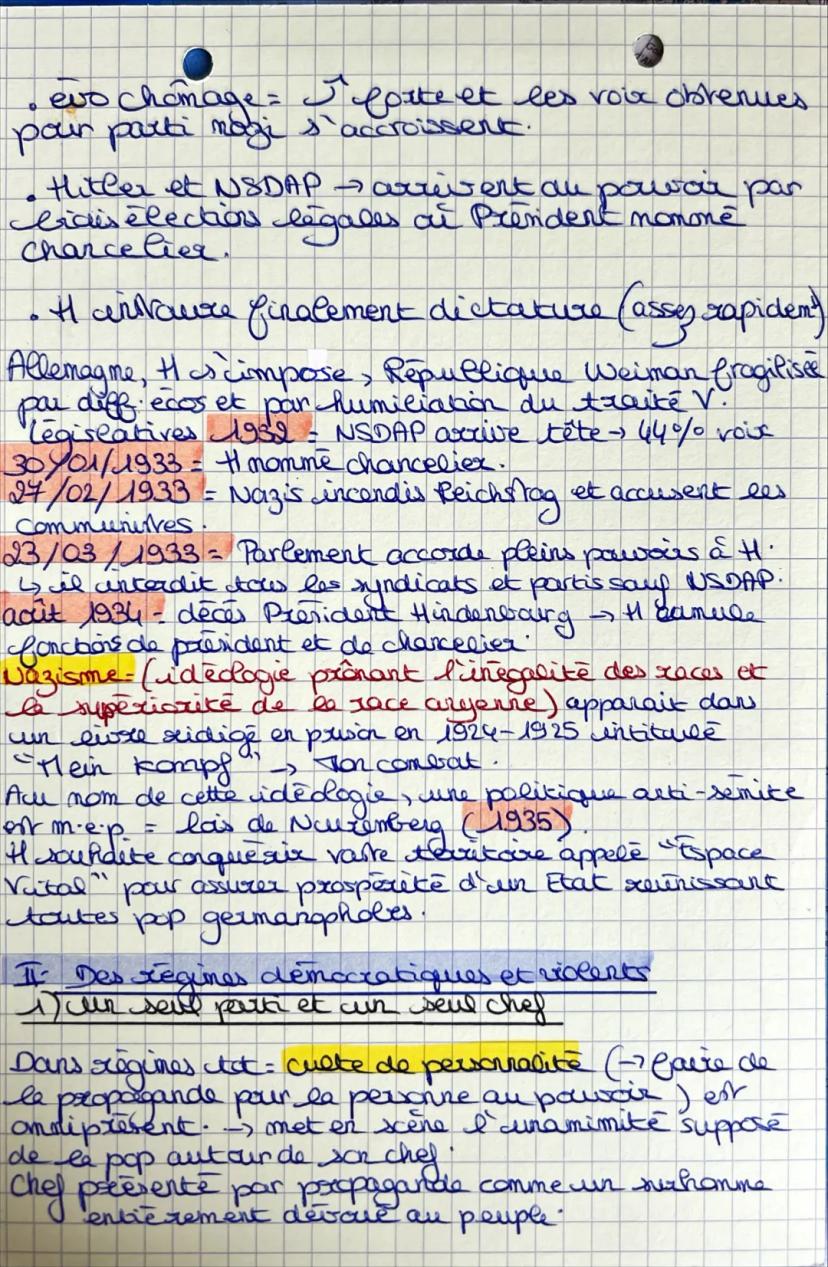 . évo chômage = ↗ forte et les voix obtenues
pour parti nazi s'accroissent.
. Hitler et NSDAP → arrivent au pouvoir par
biais élections légales où Président nommé
chancelier.
. H instaure finalement dictature (assez rapidemt)
Allemagne, H s'impose, République Weiman fragilisée
par diff. écos et par humiliation du traité V.
Législatives 1932 = NSDAP arrive tête → 44% voix
30/01/1933 = H nommé chancelier.
27/02/1933 = Nazis incendis Reichstag et accusent les
communistes.
23/03/1933 = Parlement accorde pleins pouvoirs à H.
↳ il interdit tous les syndicats et partis sauf NSDAP.
août 1934 = décès Président Hindenbourg → H cumule
fonctions de président et de chancelier.
Nazisme = (idéologie prônant l'inégalité des races et
la supériorité de la race aryenne) apparait dans
un livre rédigé en prison en 1924-1925 intitulé
"Mein Kampf" → Mon combat.
Au nom de cette idéologie, une politique anti-sémite
est m.e.p. = lois de Nuremberg (1935).
H souhaite conquérir vaste territoire appelé "Espace
Vital" pour assurer prospérité d'un Etat réunissant
toutes pop germanophobes.
II- Des régimes démocratiques et violents
1) Un seul parti et un seul chef
Dans régimes tot = culte de personnalité (→ faire de
la propagande pour la personne au pouvoir) est
omniprésent. → met en scène l'unamimité supposé
de la pop autour de son chef.
Chef présenté par propagande comme un surhomme
entièrement dévoué au peuple.